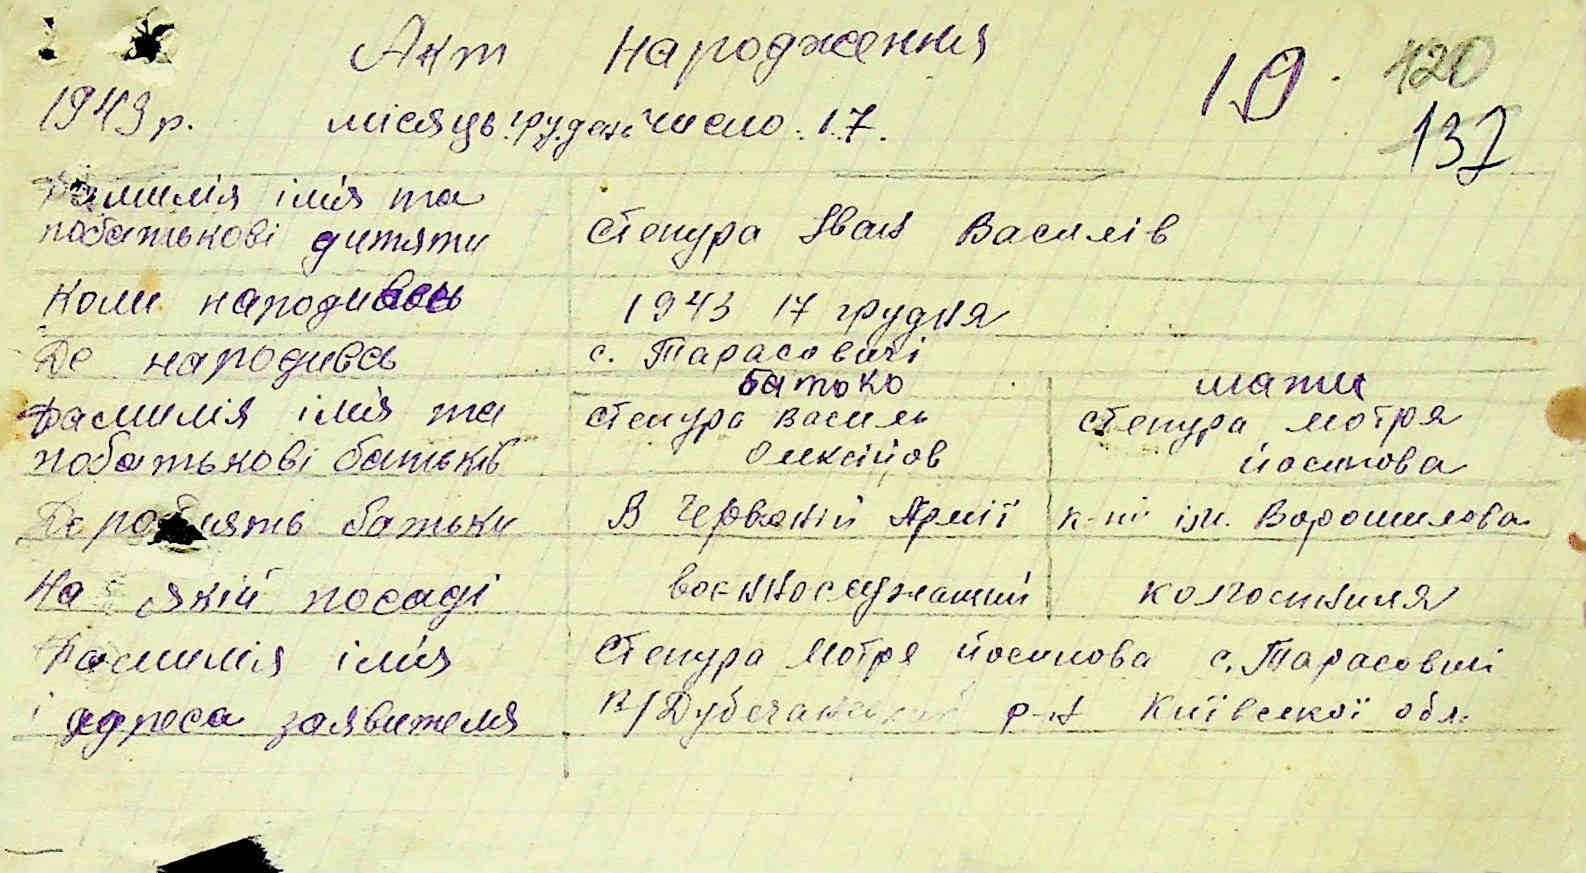 Акт народження
19.
120
137
1943 р. місяць грудень число 17.
Фамилія імія та
побатькові дитяти
Степура Іван Василів
Коли народивсь
1943 17 грудня
Де народивсь
с. Тарасовичі
Батько
мати
Фамилія імія та
побатькові батьків
Степура Василь
Олексійов
Степура Мотря
йосипова
Де роблять батьки
В Червоній Армії
к-пі ім. Ворошилова
На якій посаді
воєннослужащий
колгоспниця
Фамилія імія
і адреса заявителя
Степура Мотря йосипова с. Тарасовичі
р-н Київської обл.